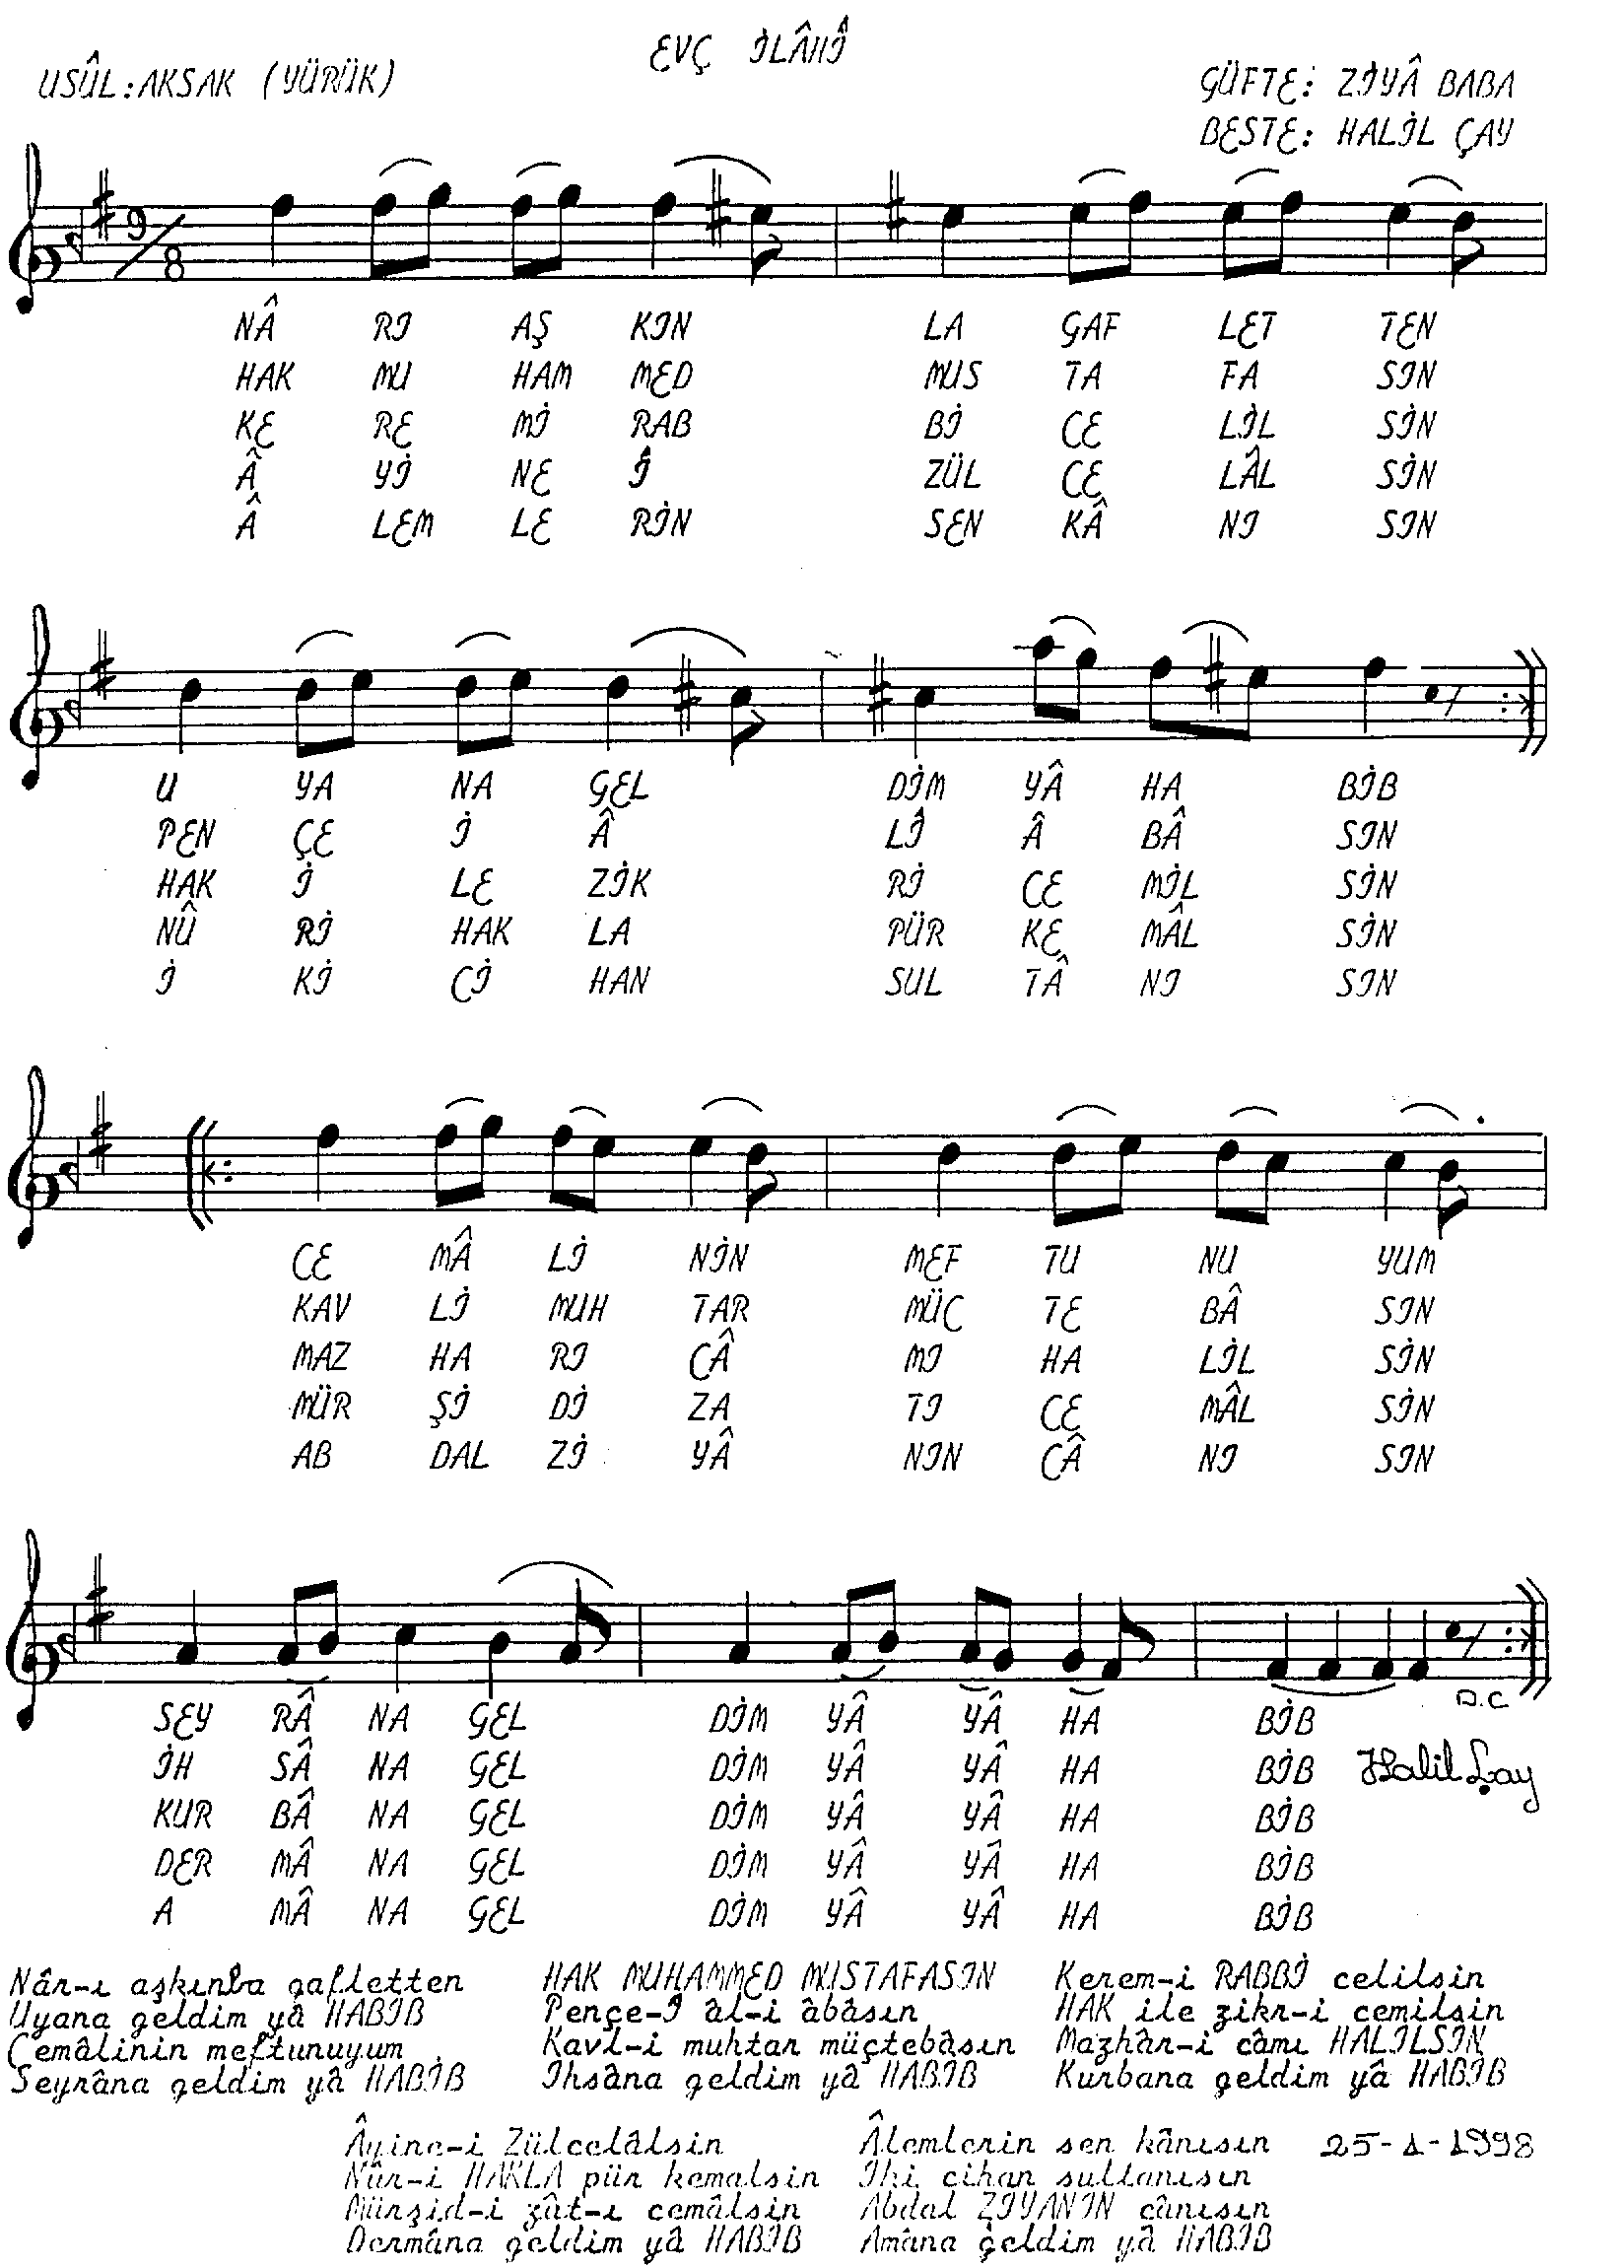 EVÇ İLÂHÎ
USÛL: AKSAK (YÜRÜK)
GÜFTE: ZİYÂ BABA
BESTE: HALİL ÇAY
9/8
NÂ RI AŞ KIN LA GAF LET TEN
HAK MU HAM MED MUS TA FA SIN
KE RE Mİ RAB Bİ CE LİL SİN
Â Yİ NE Î ZÜL CE LÂL SİN
Â LEM LE RİN SEN KÂ NI SIN
U YA NA GEL DİM YÂ HA BİB
PEN ÇE İ Â LÎ Â BÂ SIN
HAK İ LE ZİK Rİ CE MİL SİN
NÛ Rİ HAK LA PÜR KE MÂL SİN
İ Kİ Cİ HAN SUL TÂ NI SIN
CE MÂ Lİ NİN MEF TU NU YUM
KAV Lİ MUH TAR MÜC TE BÂ SIN
MAZ HA RI CÂ MI HA LİL SİN
MÜR Şİ Dİ ZA TI CE MÂL SİN
AB DAL Zİ YÂ NIN CÂ NI SIN
SEY RÂ NA GEL DİM YÂ YÂ HA BİB
D.C
İH SÂ NA GEL DİM YÂ YÂ HA BİB
Halil Çay
KUR BÂ NA GEL DİM YÂ YÂ HA BİB
DER MÂ NA GEL DİM YÂ YÂ HA BİB
A MÂ NA GEL DİM YÂ YÂ HA BİB
Nâr-ı aşkınla gafletten
Uyana geldim yâ HABİB
Cemâlinin meftunuyum
Seyrâna geldim yâ HABİB
HAK MUHAMMED MUSTAFASIN
Pençe-İ âl-i âbâsın
Kavl-i muhtar müçtebâsın
İhsâna geldim yâ HABİB
Kerem-i RABBİ celilsin
HAK ile zikr-i cemilsin
Mazhâr-i câmı HALİLSİN
Kurbana geldim yâ HABİB
Âyine-i Zülcelâlsin
Nûr-i HAKLA pür kemalsin
Mürşid-i zât-ı cemâlsin
Dermâna geldim yâ HABİB
Âlemlerin sen kânısın
İki cihan sultanısın
Abdal ZİYANIN cânısın
Amâna geldim yâ HABİB
25-1-1998